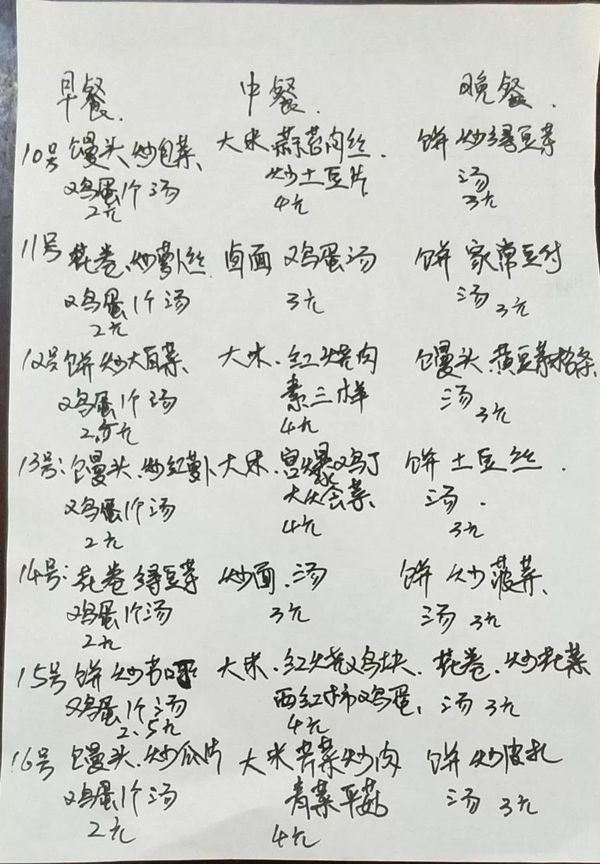 早餐. 中餐. 晚餐.
10号 馒头、炒包菜、 大米 蒜苔肉丝. 饼 炒绿豆菜
鸡蛋1个 汤 炒土豆片 汤
2元 4元 3元
11号 花卷、炒萝卜丝 卤面 鸡蛋汤 饼 家常豆付
鸡蛋1个 汤 3元 汤 3元
2元
12号 饼 炒大白菜、 大米、红烧肉 馒头、黄豆芽粉条、
鸡蛋1个 汤 素三样 汤
2.5元 4元 3元
13号: 馒头、炒红萝卜 大米、宫爆鸡丁 饼 土豆丝.
鸡蛋1个 汤 大烩菜、 汤.
2元 4元 3元
14号: 花卷 绿豆菜 炒面、汤 饼 炒菠菜、
鸡蛋1个汤 3元 汤 3元
2元
15号 饼 炒 大米、红烧鸡块、 花卷、炒花菜
鸡蛋1个 汤 西红柿鸡蛋、 汤 3元
2.5元 4元
16号 馒头、炒瓜片 大米 芹菜炒肉 饼 炒皮扎
鸡蛋1个 汤 青菜平菇 汤 3元
2元 4元